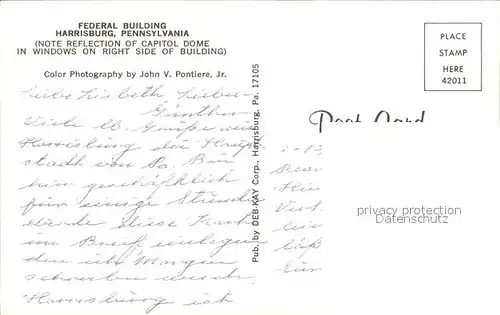 FEDERAL BUILDING
HARRISBURG, PENNSYLVANIA
(NOTE REFLECTION OF CAPITOL DOME
IN WINDOWS ON RIGHT SIDE OF BUILDING)
Color Photography by John V. Pontiere, Jr.
Liebe Lisbeth Lieber
Günther
Viele Grüße aus
Harrisburg die Haupt
stadt von Pa. Bin
hier geschäftlich
für einige Stunden
werde diese Karte
im Brief einlegen
den ich Morgen
schreiben werde.
Harrisburg ist
Pub. by DEB-KAY Corp., Harrisburg, Pa. 17105
PLACE
STAMP
HERE
42011
Post Card
privacy protection
Datenschutz